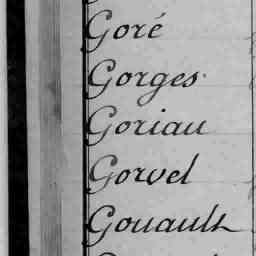 Goré
Gorges
Goriau
Gorvel
Gouault